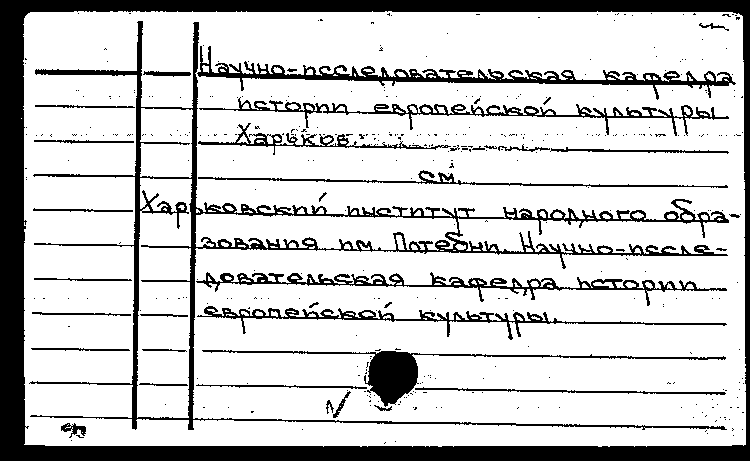 Научно-исследовательская кафедра
истории европейской культуры
Харьков.
см.
Харьковский институт народного обра-
зования им. Потебни. Научно-иссле-
довательская кафедра истории
европейской культуры.